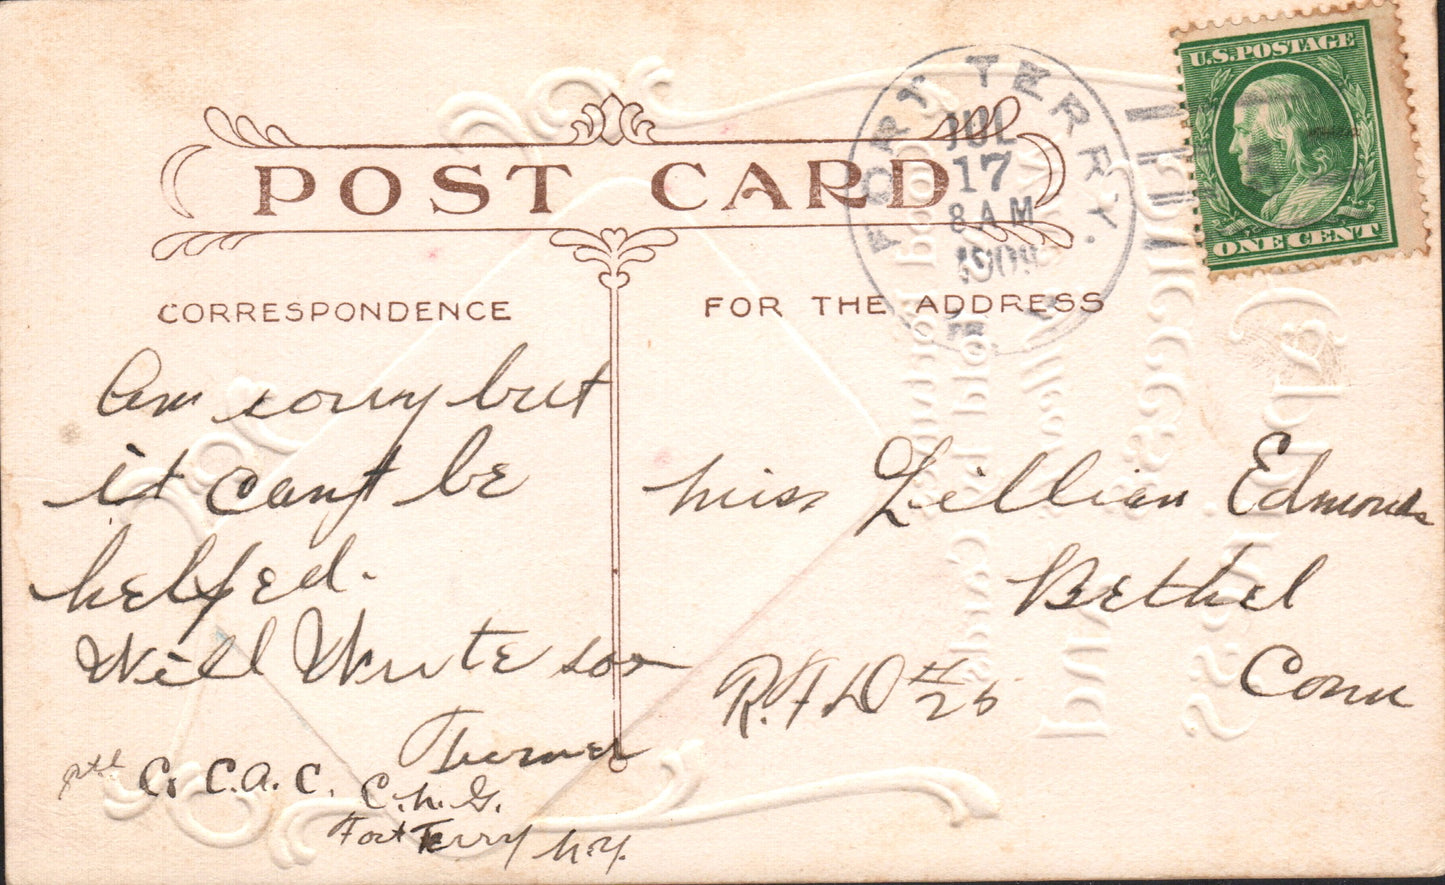 U.S. POSTAGE
ONE CENT
FORT TERRY.
JUL
17
8 AM
1909
N.Y.
POST CARD
CORRESPONDENCE
FOR THE ADDRESS
Am sorry but
it can't be
helped.
Will Write soon
Turner
C. C.A.C. C.N.G.
Fort Terry N.Y.
Miss Lillian Edmonds
Bethel
Conn
R.F.D #25